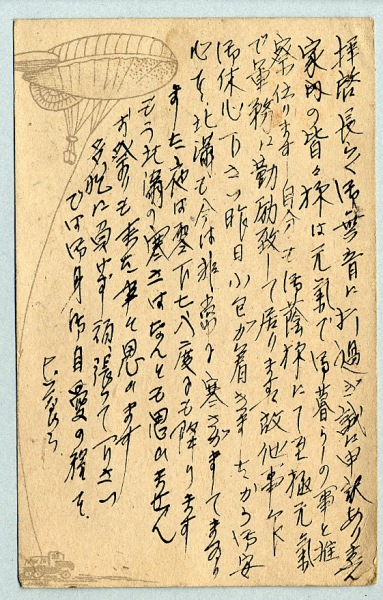 拝啓長らく御無音に打過ぎ誠に申訳ありません
家内の皆々様は元気で御暮らしの事と推
察仕ります自分も御蔭様にて至極元気
で軍務に勤励致して居ります故他事乍ら
御休心下さい昨日小包が着きましたから御安
心を、北満も今は非常に寒さがましてまゐり
ました夜は零下七八度にも降ります
もう北満の寒さはなんとも思ひません
お祭りも来た事と思ひます
多忙に
頑張って下さい
では御身御自愛の程を